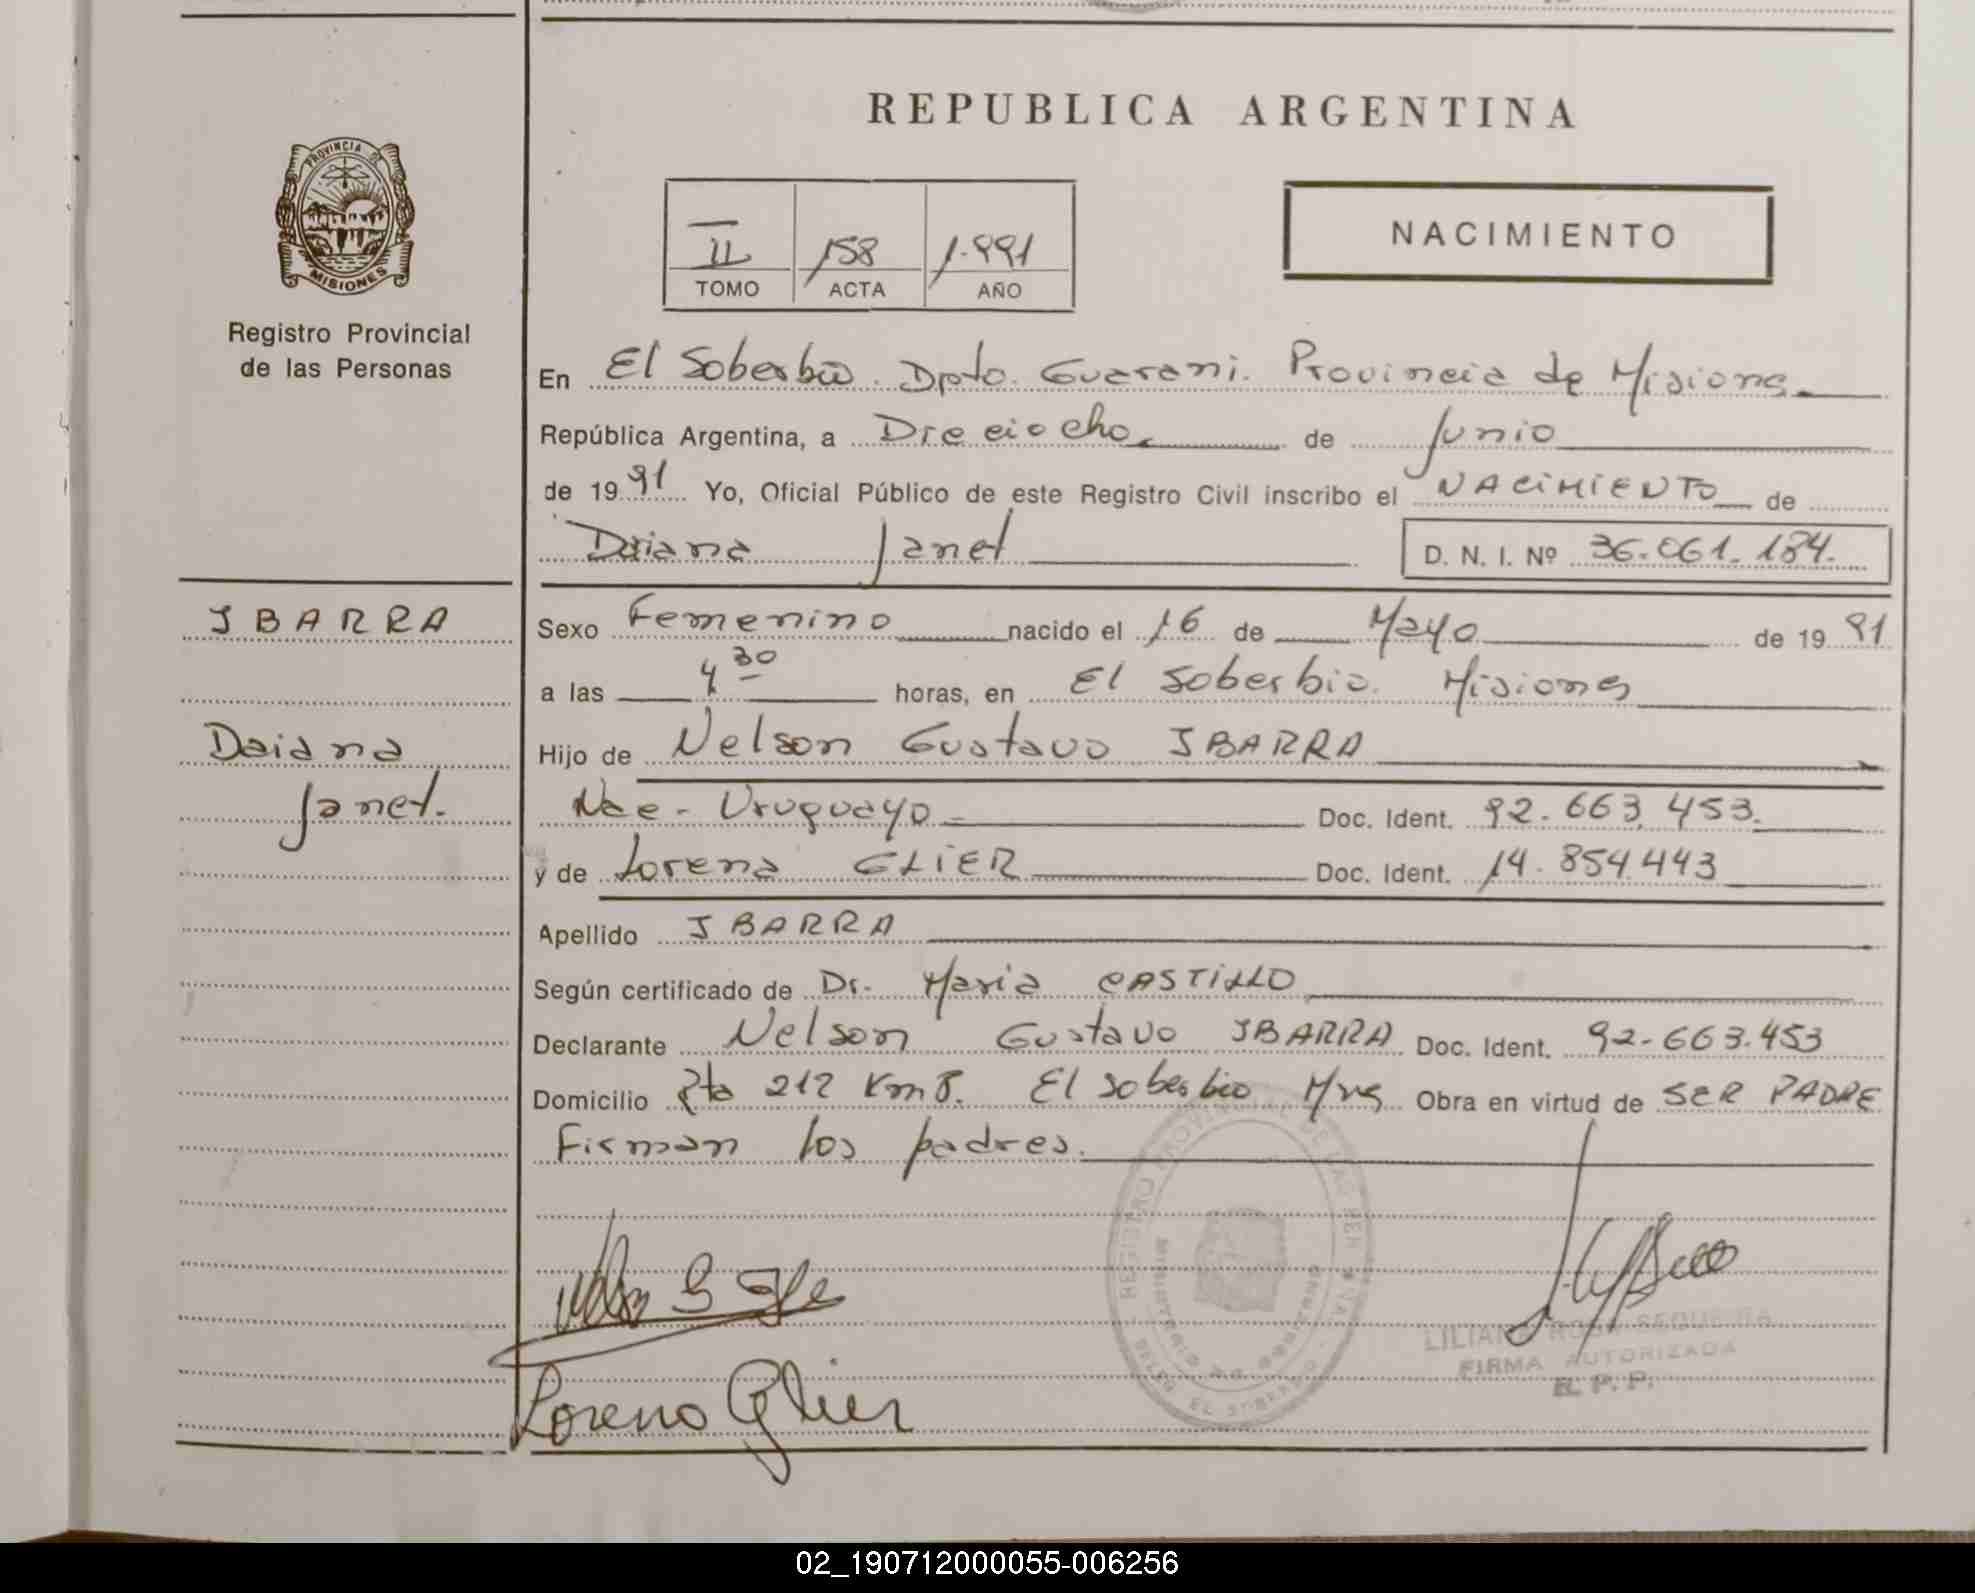 REPUBLICA ARGENTINA
PROVINCIA DE
MISIONES
Registro Provincial
de las Personas
II 158 1.991
TOMO ACTA AÑO
NACIMIENTO
En El Soberbio. Dpto. Guarani. Provincia de Misiones
República Argentina, a Dieciocho de Junio
de 1991 Yo, Oficial Público de este Registro Civil inscribo el NACIMIENTO de
Daiana Janet D. N. I. Nº 36.061.184.
IBARRA
Daiana
Janet.
Sexo Femenino nacido el 16 de Mayo de 1991
a las 4 30 horas, en El Soberbio. Misiones
Hijo de Nelson Gustavo IBARRA
Nac- Uruguayo Doc. Ident. 92.663.453.
y de Lorena GLIER Doc. Ident. 14.854.443
Apellido IBARRA
Según certificado de Dr. Maria CASTILLO
Declarante Nelson Gustavo IBARRA Doc. Ident. 92-663.453
Domicilio Rta 212 Km 8. El Soberbio Mnes Obra en virtud de SER PADRE
Firman los padres.
REGISTRO PROVINCIAL DE LAS PER
MINISTERIO DE GOBIERNO
EL SOBERBIO
Lorena Glier
LILIANA ROSA SEQUEIRA
FIRMA AUTORIZADA
R. P. P.
02_190712000055-006256